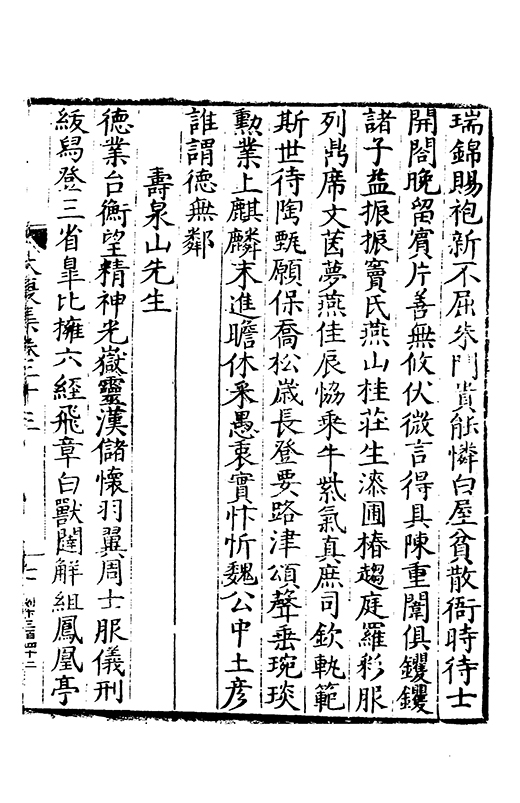 瑞錦賜袍新不屈朱門貴能憐白屋貧散衙時待士
開閤晚留賓片善無攸伏微言得具陳重闈俱钁鑠
諸子益振振竇氏燕山桂莊生漆圃椿趨庭羅彩服
列鼎席文茵夢燕佳辰恊乘牛紫氣真庶司欽軌範
斯世待陶甄願保喬松歲長登要路津頌聲垂琬琰
勳業上麒麟末進瞻休采愚衷實忭忻魏公中土彥
誰謂德無鄰
壽泉山先生
德業台衡望精神光嶽靈漢儲懷羽翼周士服儀刑
紱舄登三省皐比擁六經飛章白獸闥解組鳳凰亭
集卷三十三